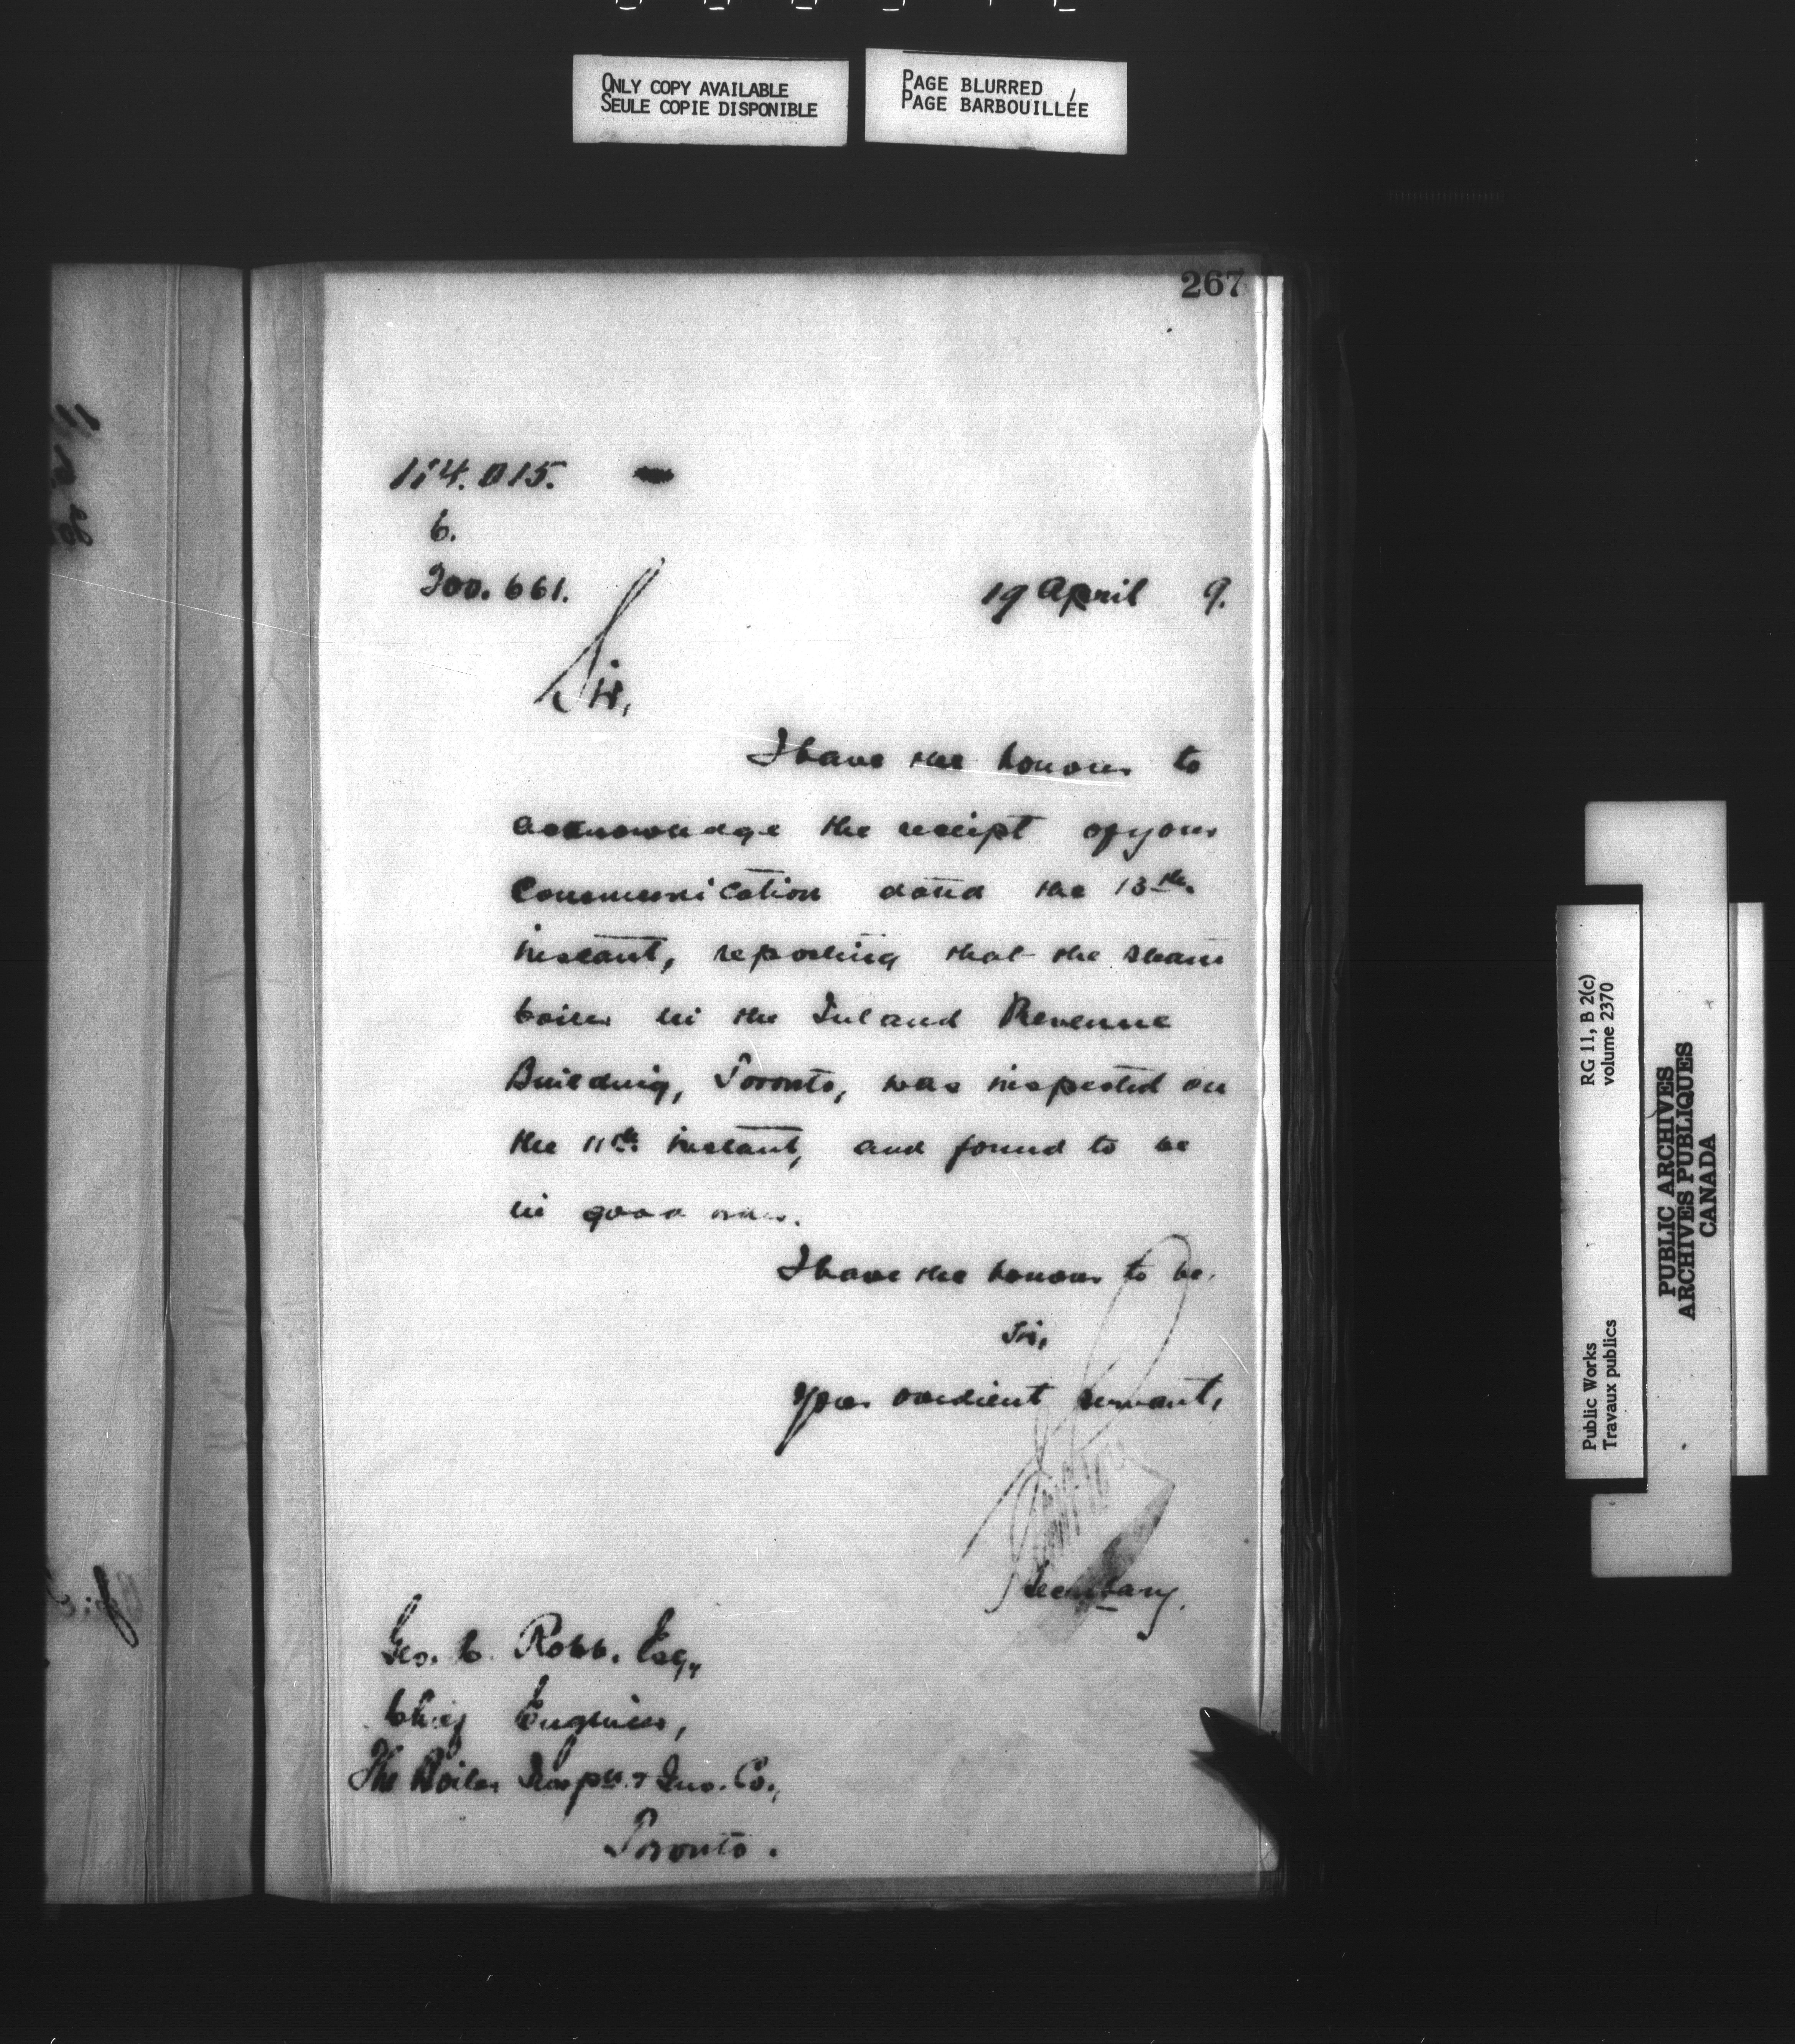 ONLY COPY AVAILABLE
SEULE COPIE DISPONIBLE
PAGE BLURRED
PAGE BARBOUILLÉE
267
114.015.
6.
200.661.
19 April 9.
Sir,
I have the honour to
acknowledge the receipt of your
communication dated the 13th.
instant, reporting that the steam
boiler in the Inland Revenue
Building, Toronto, was inspected on
the 11th. instant, and found to be
in good order.
I have the honour to be,
Sir,
Your obedient servant,
Secretary.
Geo. C. Robb. Esq.,
Chief Engineer,
The Boiler Inspn. & Ins. Co.,
Toronto.
RG 11, B 2(c)
volume 2370
Public Works
Travaux publics
PUBLIC ARCHIVES
ARCHIVES PUBLIQUES
CANADA